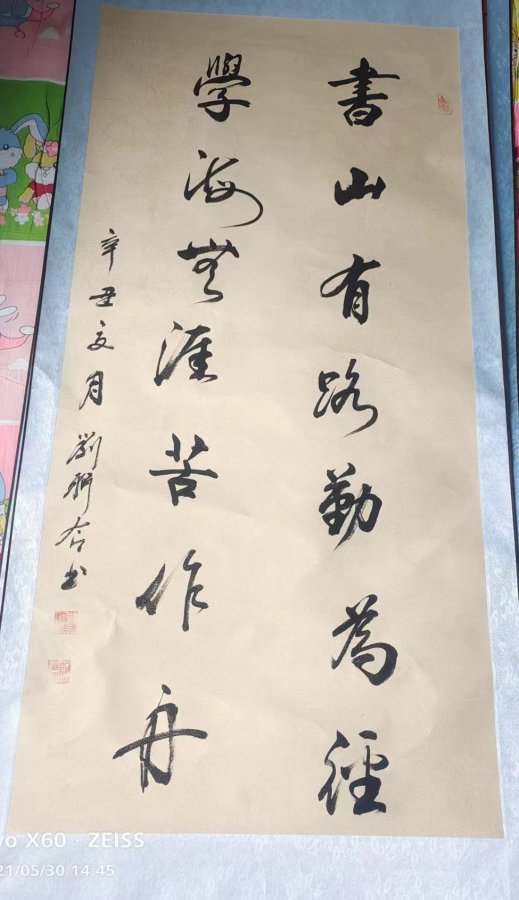 書山有路勤為徑
學海無涯苦作舟
辛丑夏月劉聊合書
vo X60 · ZEISS
21/05/30 14:45